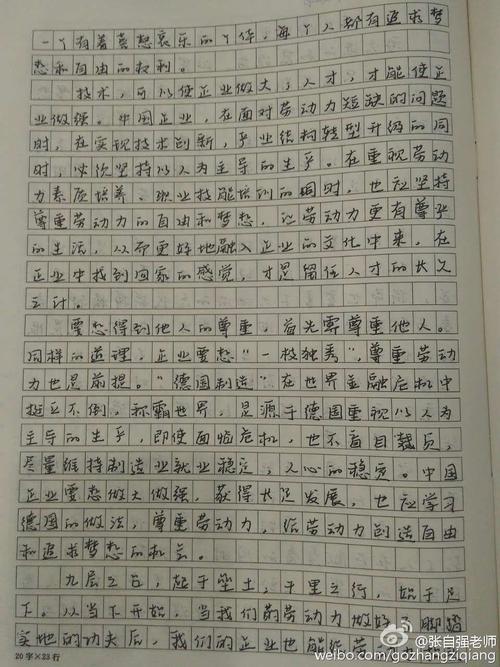 一个有着喜怒哀乐的个体,每个人都有追求梦
想和自由的权利。
技术,可以使企业做大;人才,才能使企
业做强。中国企业,在面对劳动力短缺的问题
时,在实现技术创新,产业结构转型升级的同
时,必须坚持以人为主导的生产。在重视劳动
力素质培养、职业技能培训的同时,也应坚持
尊重劳动力的自由和梦想,让劳动力更有尊严
的生活,从而更好地融入企业的文化中来,在
企业中找到回家的感觉,才是留住人才的长久
之计。
要想得到他人的尊重,首先尊尊重他人。
同样的道理,企业要想“一枝独秀”,尊重劳动
力也是前提。“德国制造”在世界金融危机中
挺立不倒,称霸世界,是源于德国重视以人为
主导的生产,即使面临危机,也不盲目裁员,
尽量维持制造业就业稳定,人心的稳定。中国
企业要想做大做强,获得长足发展,也应学习
德国的做法,尊重劳动力,给劳动力创造自由
和追求梦想的机会。
九层之台,起于垒土,千里之行,始于足
下。从当下开始,当我们的劳动力做好 脚踏
实地的功夫后,我们的企业也能
20字×23行
@张自强老师
weibo.com/gozhangziqiang